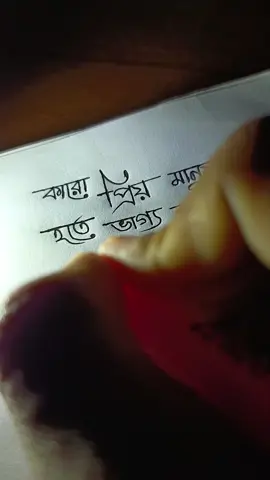 কারো প্রিয় মানু
হতে ভাগ্য